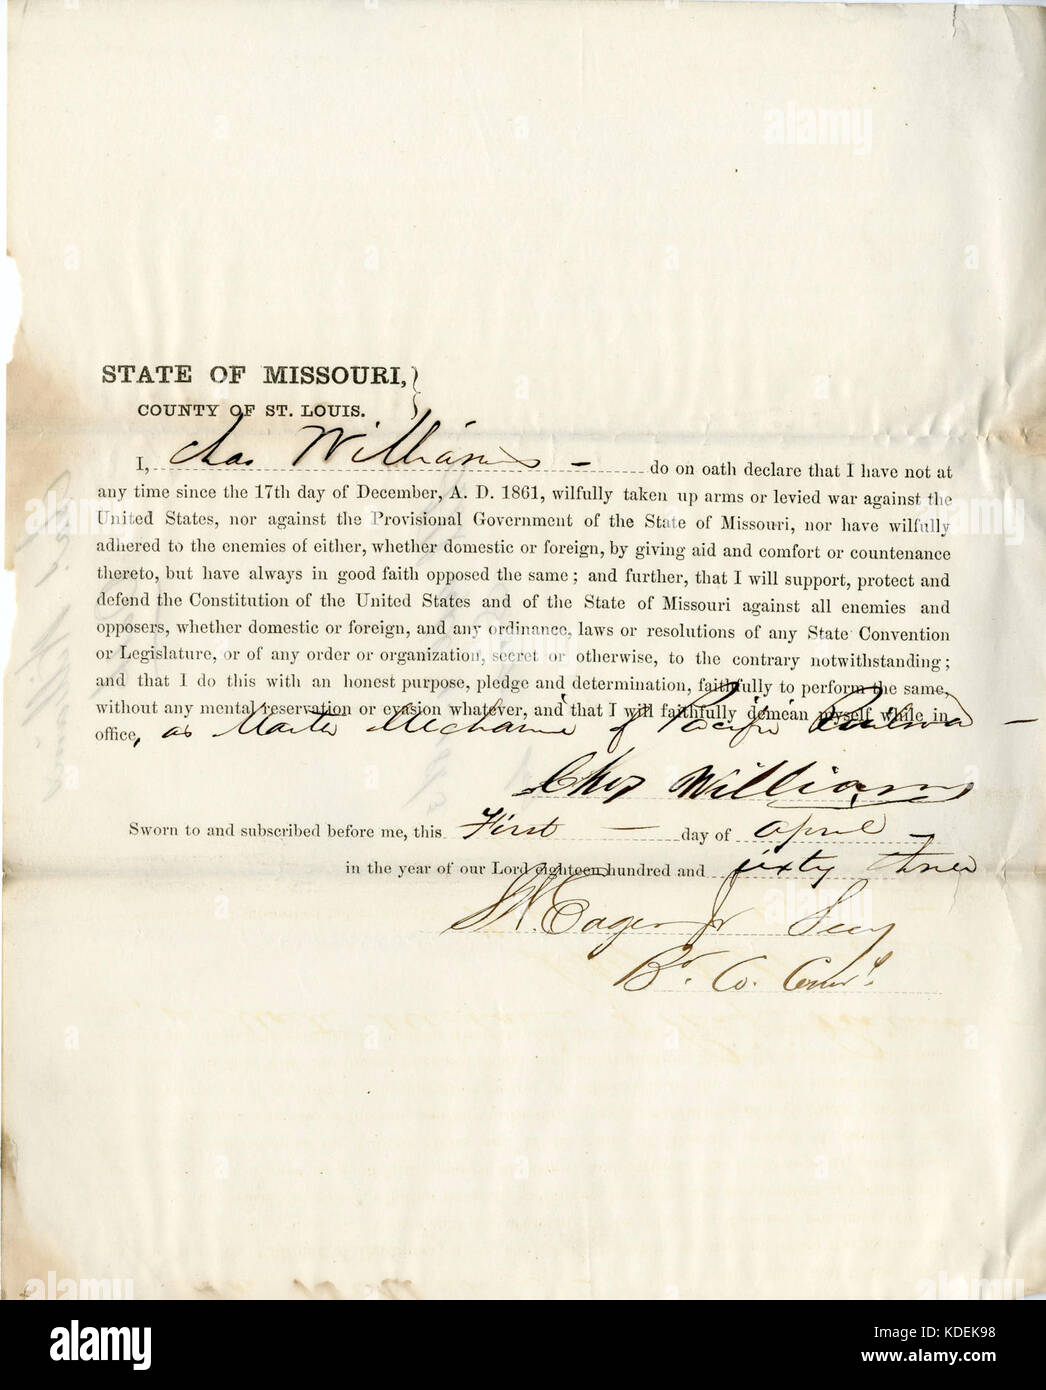 STATE OF MISSOURI,
COUNTY OF ST. LOUIS.
I, Chas Williams - do on oath declare that I have not at
any time since the 17th day of December, A. D. 1861, wilfully taken up arms or levied war against the
United States, nor against the Provisional Government of the State of Missouri, nor have wilfully
adhered to the enemies of either, whether domestic or foreign, by giving aid and comfort or countenance
thereto, but have always in good faith opposed the same; and further, that I will support, protect and
defend the Constitution of the United States and of the State of Missouri against all enemies and
opposers, whether domestic or foreign, and any ordinance, laws or resolutions of any State Convention
or Legislature, or of any order or organization, secret or otherwise, to the contrary notwithstanding;
and that I do this with an honest purpose, pledge and determination, faithfully to perform the same,
without any mental reservation or evasion whatever, and that I will faithfully demean myself while in
office, as Master Mechanic of Pacific Railroad -
Chas Williams
Sworn to and subscribed before me, this First - day of April -
in the year of our Lord eighteen hundred and sixty three
Eager Jr Secy
Bd. Co. Comrs.
alamy
Image ID: KDEK98
www.alamy.com